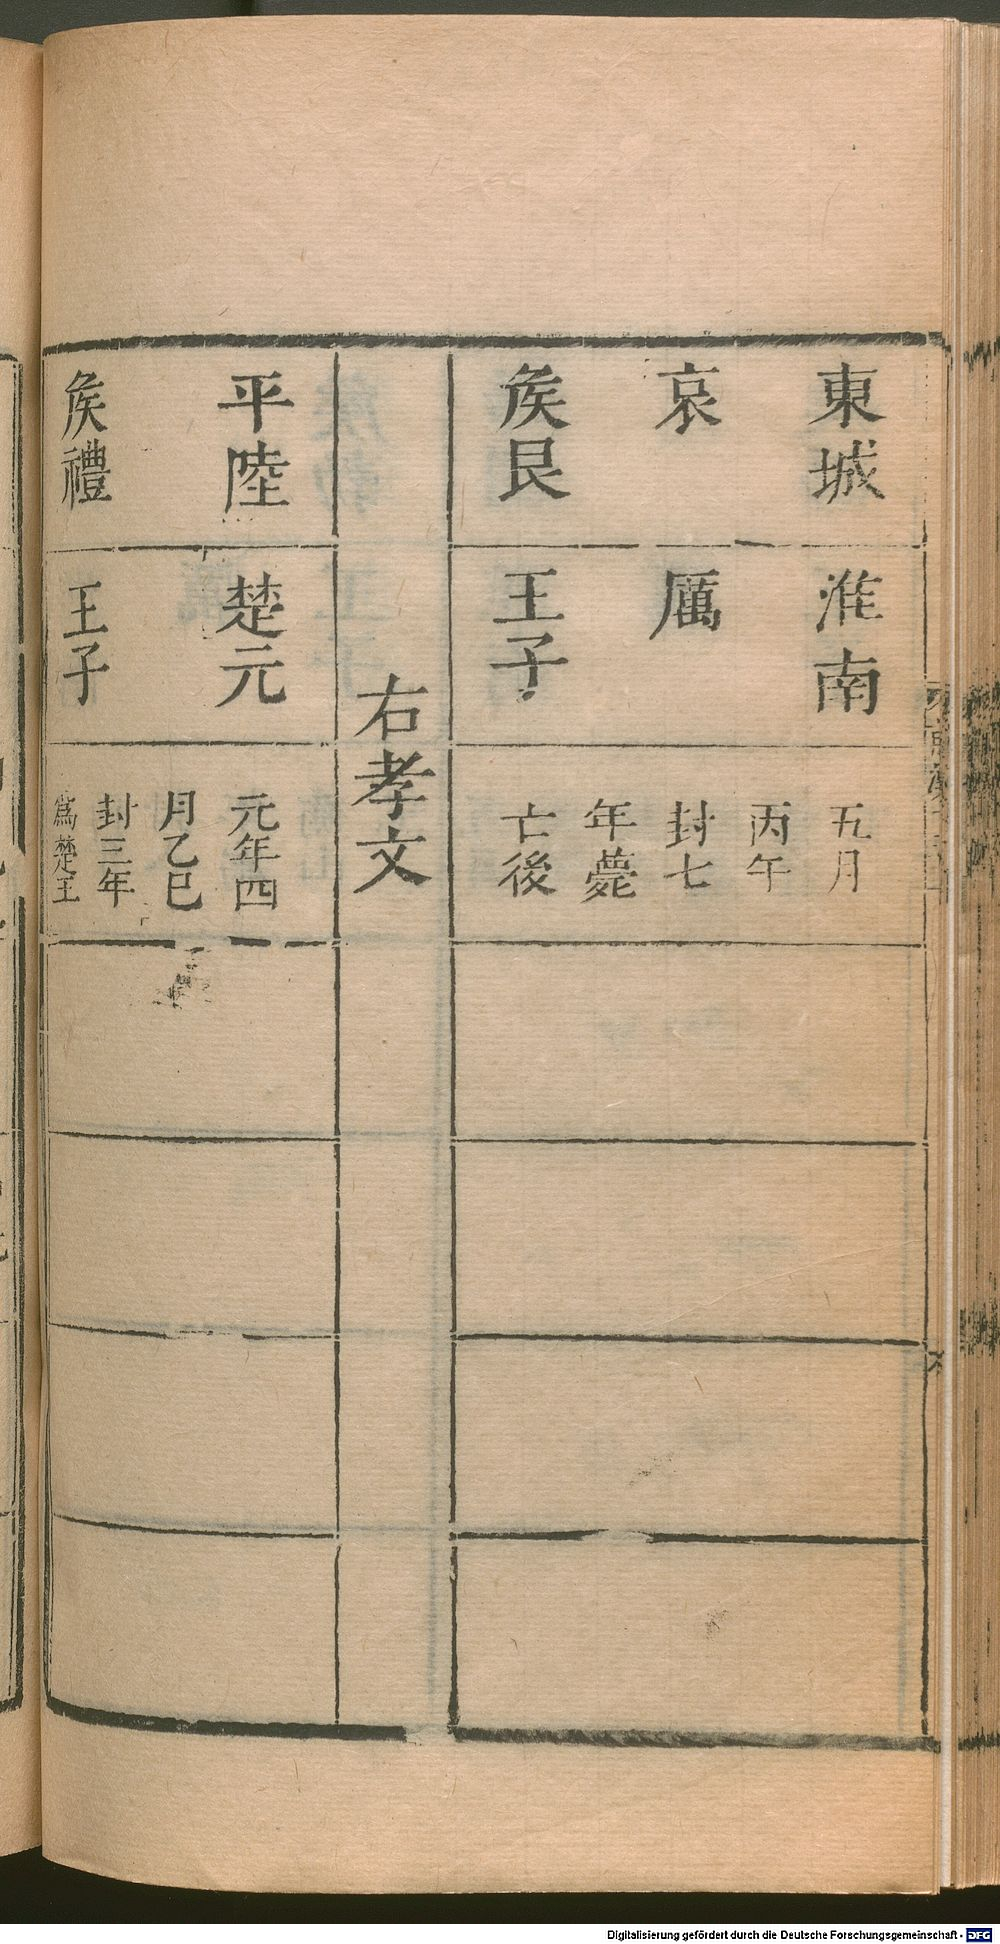 東城
哀
矦艮
淮南
厲
王子
五月
丙午
封七
年薨
亡後
右孝文
平陸
矦禮
楚元
王子
元年四
月乙巳
封三年
爲楚王
Digitalisierung gefördert durch die Deutsche Forschungsgemeinschaft - DFG